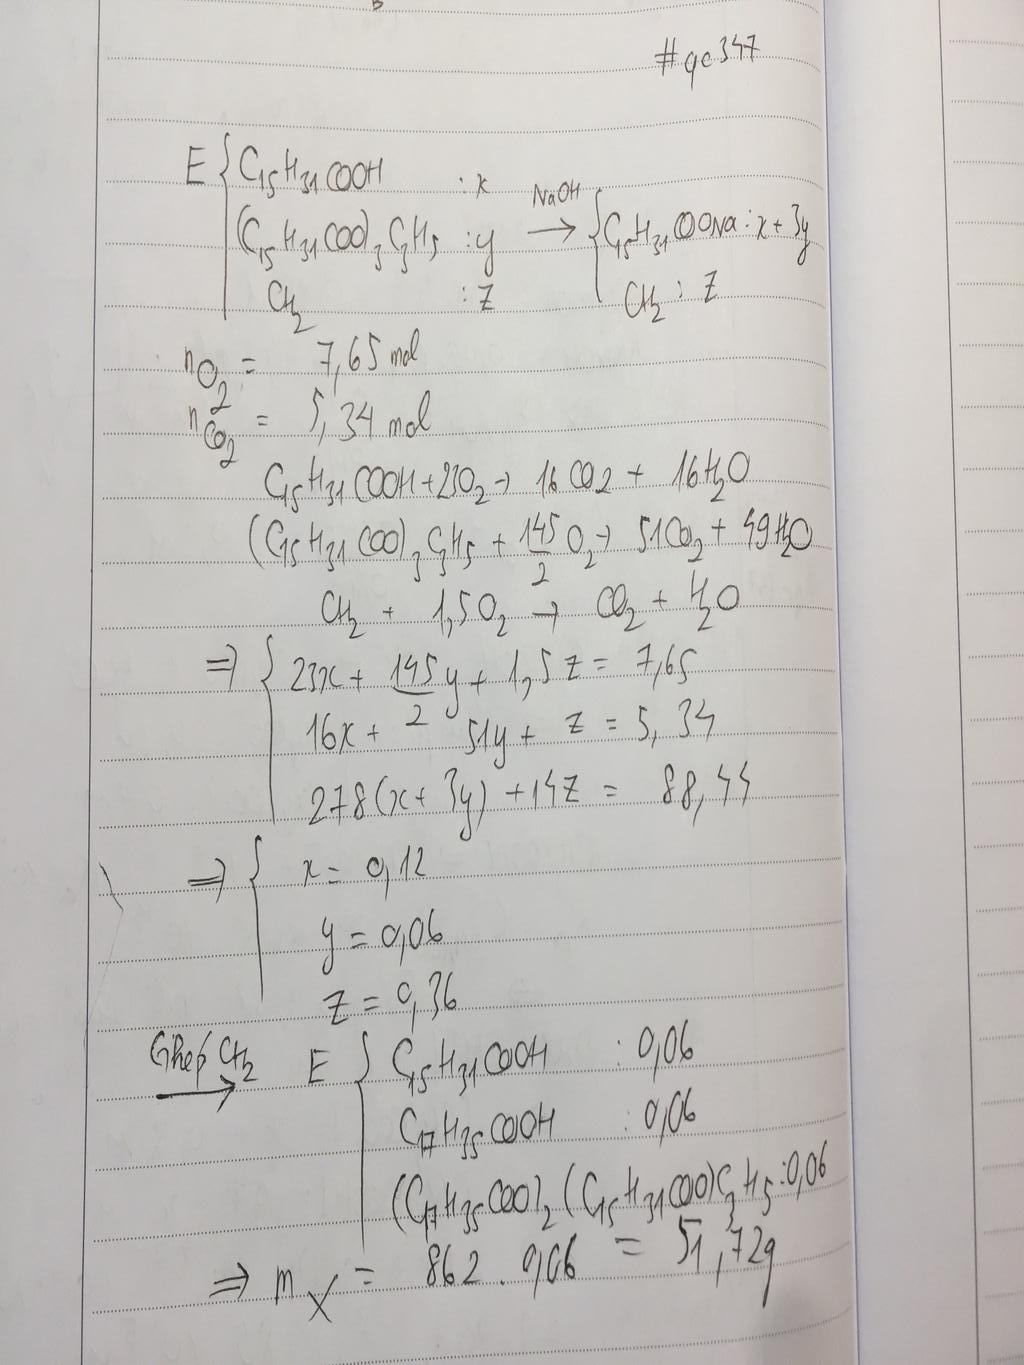 #gc347
E { C15H31COOH : x
(C15H31COO)3C3H5 : y → NaOH { C15H31COONa : x + 3y
CH2 : z CH2 : z
nO2 = 7,65 mol
nCO2 = 5,34 mol
C15H31COOH + 23O2 → 16CO2 + 16H2O
(C15H31COO)3C3H5 + 145/2 O2 → 51CO2 + 49H2O
CH2 + 1,5O2 → CO2 + H2O
⇒ { 23x + 145/2 y + 1,5z = 7,65
16x + 51y + z = 5,34
278(x + 3y) + 14z = 88,44
⇒ { x = 0,12
y = 0,06
z = 0,36
Ghép CH2 → E { C15H31COOH : 0,06
C17H35COOH : 0,06
(C17H35COO)2(C15H31COO)C3H5 : 0,06
⇒ mX = 862 . 0,06 = 51,72g